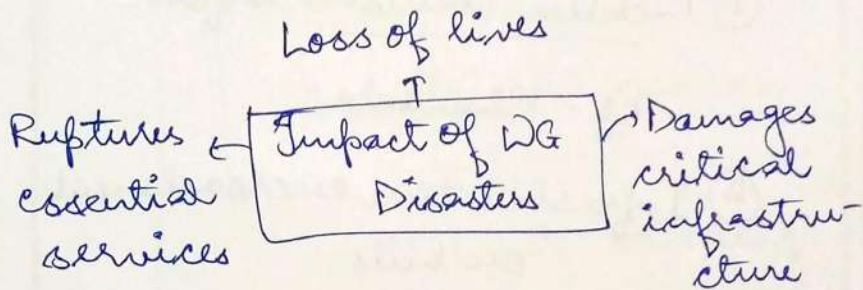 Loss of lives
Ruptures
essential
services
Impact of WG
Disasters
Damages
critical
infrastru-
cture